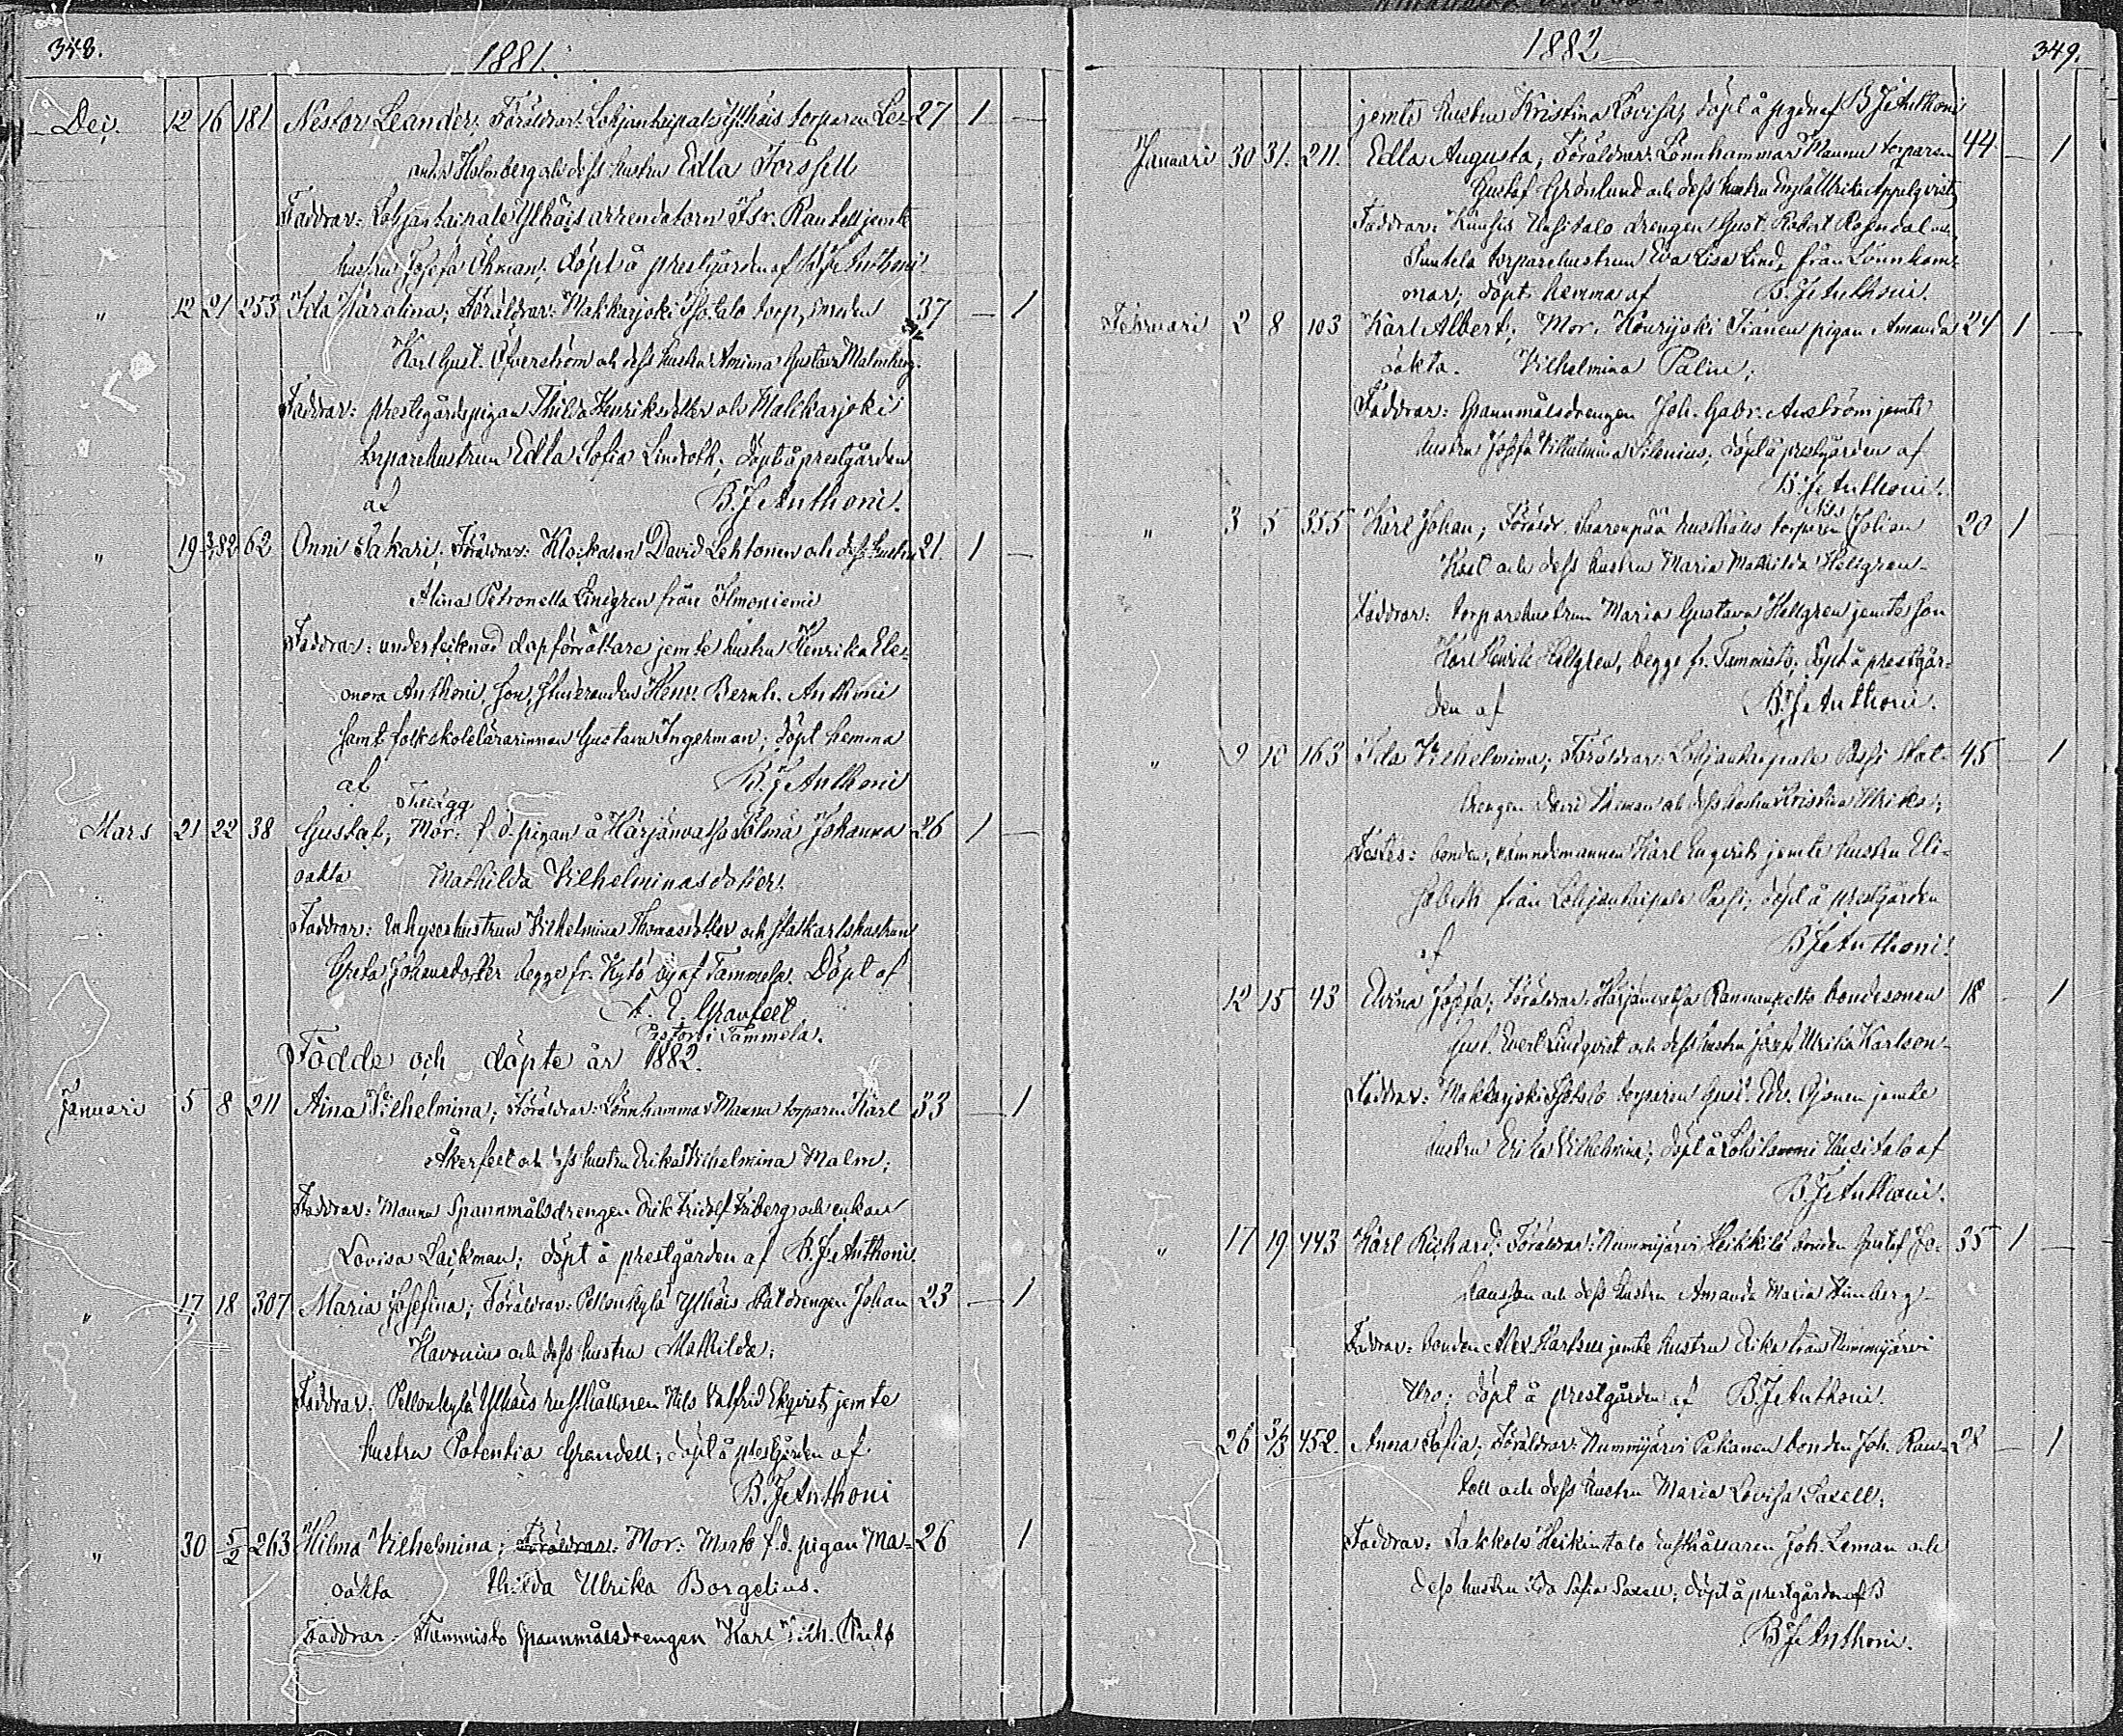 348.
1881.
Dec. 12 16 181 Nestor Leander; Föräldrar: Lohjantaipale Ylhäis torparen Le- 27 1 —
ander Holmberg och dess hustru Edla Forssell
Faddrar: Lohjantaipale Ylhäis arrendatorn Isr. Rautell jemte
hustru Josefa Öhman; döpt å prestgården af B. J. Anthoni
" 12 21 253 Ida Karolina; Föräldrar: Makkarjoki Isotalo torp, smeden 37 — 1
Karl Gust. Öfverström och dess hustru Amima Gustava Malmberg.
Faddrar: prestegårdspigan Thilda Henriksdotter och Makkarjoki
torparehustrun Edla Sofia Lindroth; döpt å prestgården
af B. J. Anthoni.
" 19 82 62 Onni Sakari; Föräldrar: Klockaren David Lehtonen och dess hustru 21. 1 —
Alina Petronella Lindgren från Ilmoniemi
Faddrar: undertecknad dopförrättare jemte hustru Henrika Ele-
onora Anthoni, son, studeranden Henr. Bernh. Anthoni
samt folkskolelärarinnan Gustava Ingerman; döpt hemma
af B. J. Anthoni
Mars 21 22 38 Gustaf; Mor: f. d. pigan å Härjänvatsa Sölmä Johanna 26 1 —
oäkta Mathilda Vilhelminasdotter.
Faddrar: Inhyseshustrun Vilhelmina Thomasdotter och statkarlshustrun
Greta Johansdotter begge fr. Kytö by af Tammela. Döpt af
F. E. Granfelt
Pastor i Tammela.
Födde och döpte år 1882.
Januari 5 8 211 Aina Vilhelmina; Föräldrar: Lönnhammar Maunu torparen Karl 33 — 1
Åkerfelt och dess hustru Erika Vilhelmina Malm;
Faddrar: Maunu Spannmålsdrengen Erik Fridolf Friberg och enkan
Lovisa Laikman; döpt å prestgården af B. J. Anthoni.
" 17 18 307 Maria Josefina; Föräldrar: Pellonkylä Ylhäis statdrengen Johan 23 — 1
Havonius och dess hustru Mathilda;
Faddrar: Pellonkylä Ylhäis rusthållaren Nils Valfrid Ekqvist jemte
hustru Potentia Grandell; döpt å prestgården af
B. J. Anthoni
" 30 5/2 263 Hilma Vilhelmina; Föräldrar: Mor: Mark f. d. pigan Ma- 26 1
oäkta thilda Ulrika Borgelius.
Faddrar: Tammisto Spannmålsdrengen Karl Vilh.
1882
349.
jemte hustru Kristina Lovisa; döpt å pgden af B J Anthoni
Januari 30 31. 211. Edla Augusta; Föräldrar: Lönnhammar Maunu torparen 44 — 1
Gustaf Grönlund och dess hustru Engla Ulrika Appelqvist
Faddrar: Uusitalo drengen Gust. Robert Rosendal och
Suntela torparehustrun Eva Lisa Lind, från Lönnham-
mar; döpt hemma af B. J. Anthoni.
Februari 2 8 103 Karl Albert; Mor: Kourijoki pigan Amanda 24 1 —
oäkta. Vilhelmina Palin;
Faddrar: Spannmålsdrengen Joh. Gabr. jemte
hustru Josefa Vilhelmina Silenius; döpt å prestgården af
B. J. Anthoni.
" 3 5 355 Karl Johan; Föräldr. Saarenpää rusthålls torparen Johan 20 1
och dess hustru Maria Mathilda Hellgren
Faddrar: torparehustrun Maria Gustava Hellgren jemte son
Karl Henrik Hellgren, begge fr. Tammisto; döpt å prestgår-
den af B. J. Anthoni.
" 9 12 163 Ida Vilhelmina; Föräldrar: Lohjantaipale Passi stat- 45 — 1
drengen David och dess hustru Kristina Ulrika;
Testes: bonden, nämndemannen Karl Enqvist jemte hustru Eli-
sabeth från Lohjantaipale Passi; döpt å prestgården
af B J Anthoni.
12 15 43 Elvina Josefa; Föräldrar: Härjänvatsa Rannanpelto bondesonen 18 — 1
Gust. Evert Lindqvist och dess hustru Josefa Ulrika Karlson
Faddrar: Makkarjoki Isotalo torparen Gust. Edv. Ojanen jemte
hustru Erika Vilhelmina; döpt å Lohilammi Uusitalo af
B. J. Anthoni.
" 17 19. 443 Karl Richard; Föräldrar: Nummijärvi Heikkilä bonden Gustaf Jo- 35 1 —
hansson och dess hustru Amanda Maria
Faddrar: bonden Alex. Karlson jemte hustru Erika från Nummijärvi
Uro; döpt å prestgården af B. J. Anthoni.
26 5/3 452. Anna Sofia; Föräldrar: Nummijärvi Pakanen bonden Joh. Ran- 28 — 1
dell och dess hustru Maria Lovisa Saxell;
Faddrar: Jakkola Heikintalo rusthållaren Joh. Leman och
dess hustru Ida Sofia Saxell; döpt å prestgården af B
B J Anthoni.